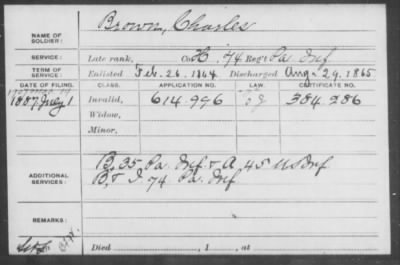 Brown, Charles
NAME OF SOLDIER:
SERVICE: Late rank, Co. H, 74 Reg't Pa Inf
TERM OF SERVICE: Enlisted Feb. 26, 1864 Discharged Aug. 29, 1865
DATE OF FILING. CLASS. APPLICATION NO. LAW. CERTIFICATE NO.
1887 July 1 Invalid, 614.996 384.286
Widow,
Minor,
ADDITIONAL SERVICES: B, 35 Pa. Inf. & A, 45 US Inf
B, & I 74 Pa. Inf
REMARKS:
Died , 1 , at